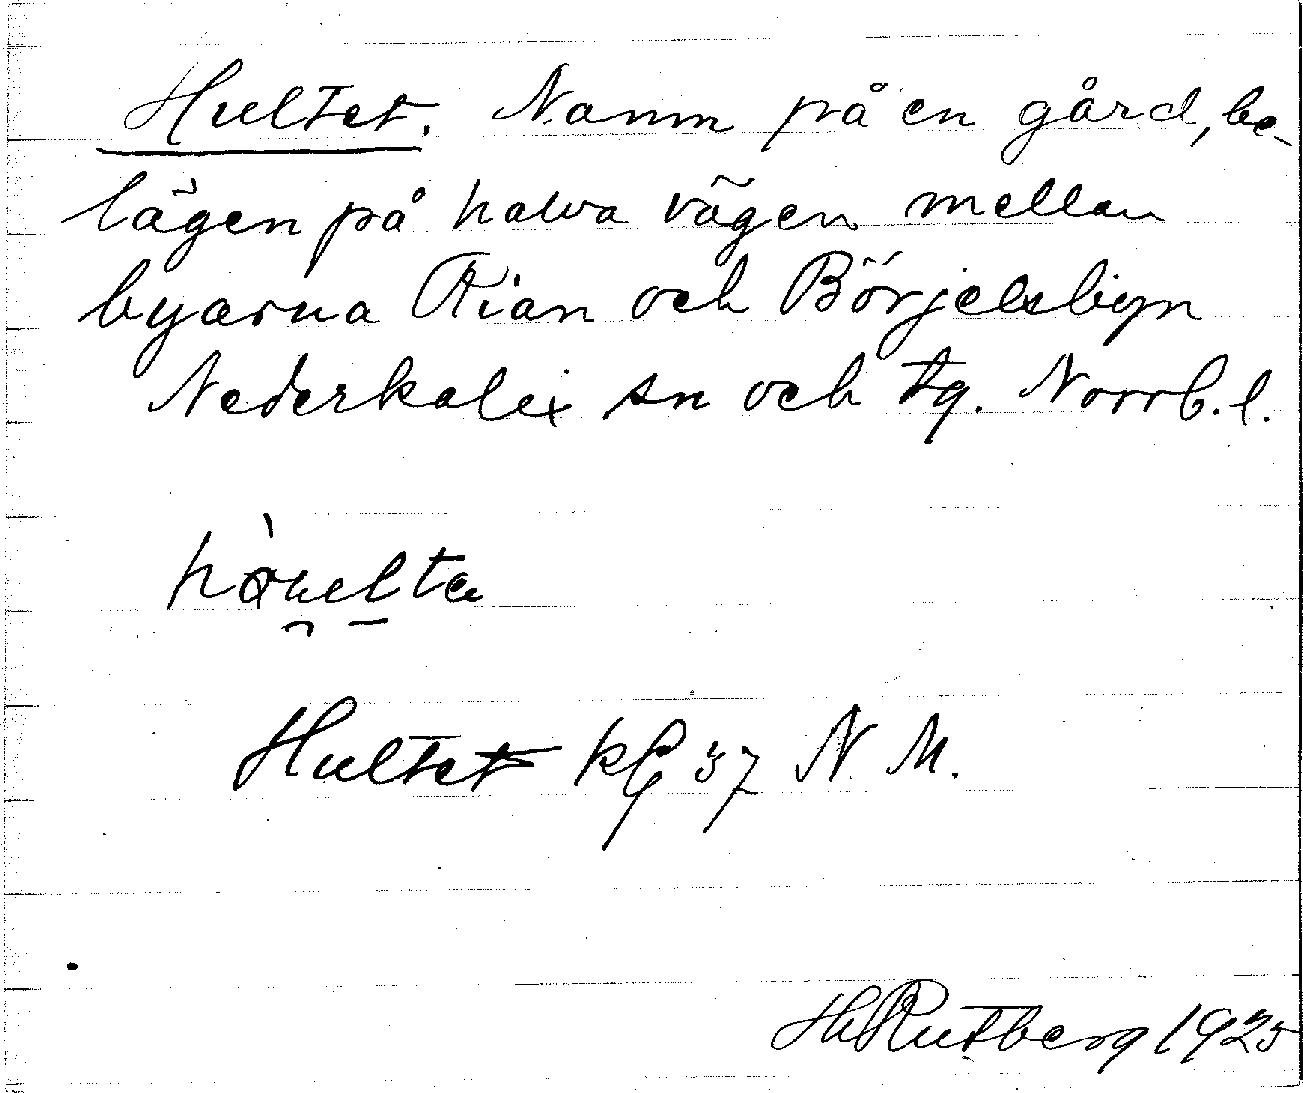 Hultet. Namn på en gård, be-
lägen på halva vägen mellan
byarna Rian och Börjelsbyn
Nederkalix sn och tg. Norrb. l.
Hultet kfl 37 N. M.
H Rutberg 1925